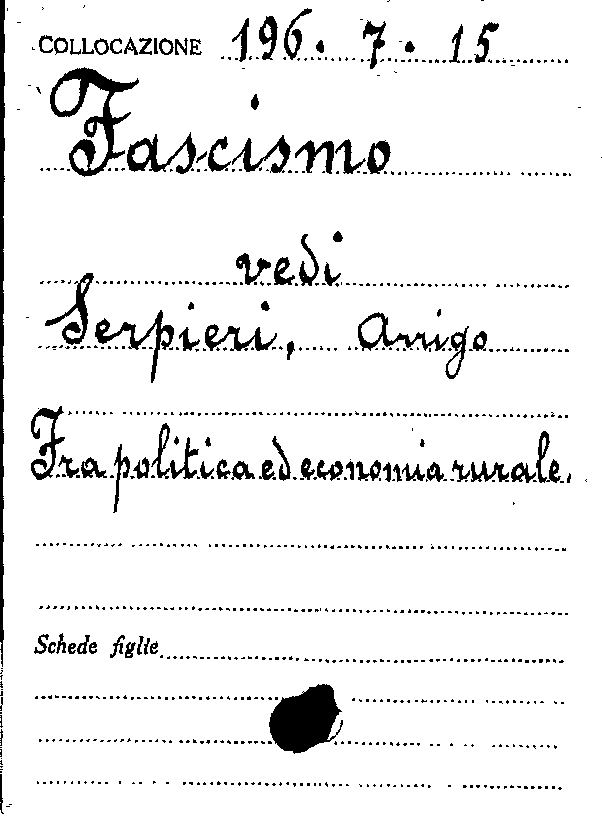 COLLOCAZIONE 196. 7. 15
Fascismo
vedi
Serpieri, Arrigo
Fra politica ed economia rurale.
Schede figlie